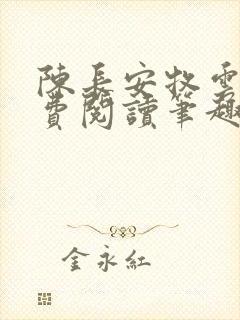 陳長安牧雲
費閱讀筆趣
金永紅